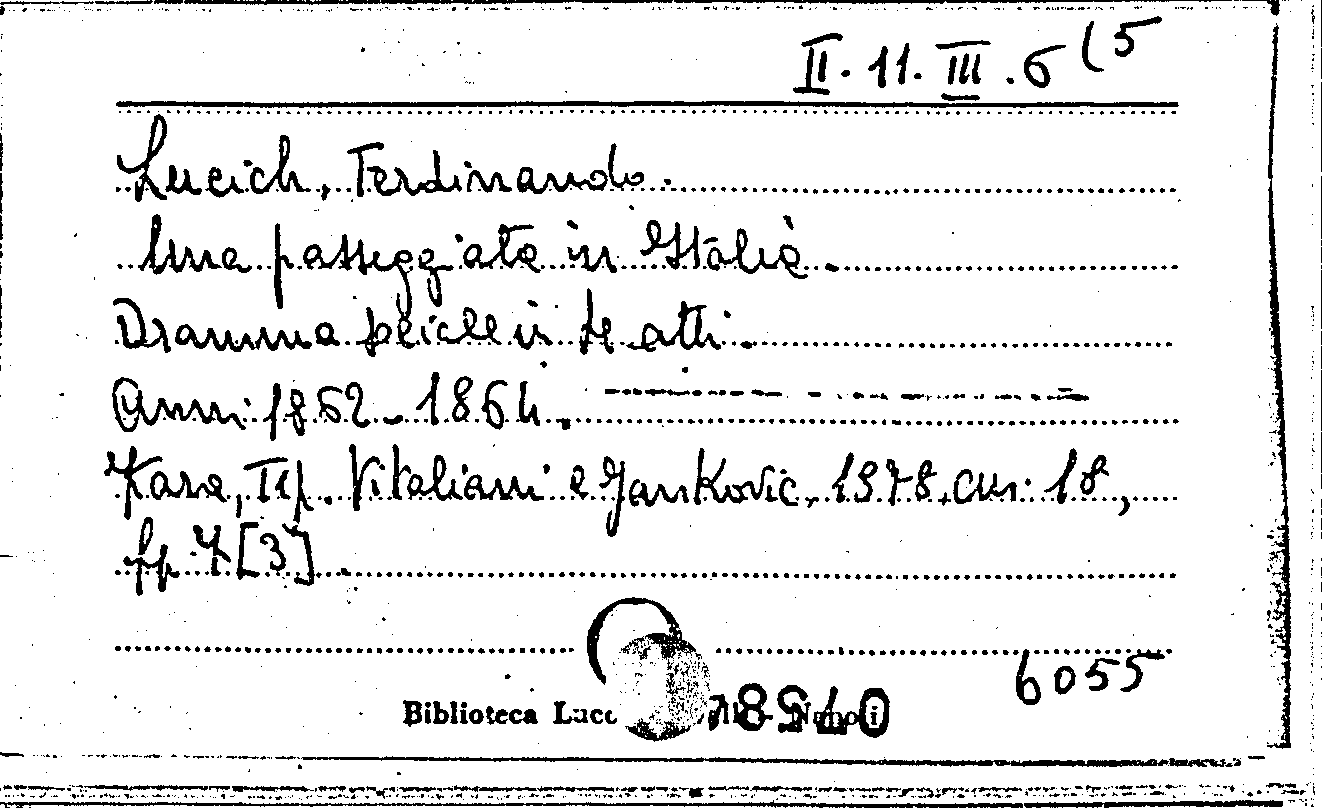 II. 11. III. 6 (5
Lucich, Ferdinando.
Una passeggiata in Italia.
Dramma in atti.
Anni 1862-1864.
Zara, Tip. Vitaliani e Jankovic, 1878. cm. 18,
pp. 7 [3].
6055
Biblioteca Napoli